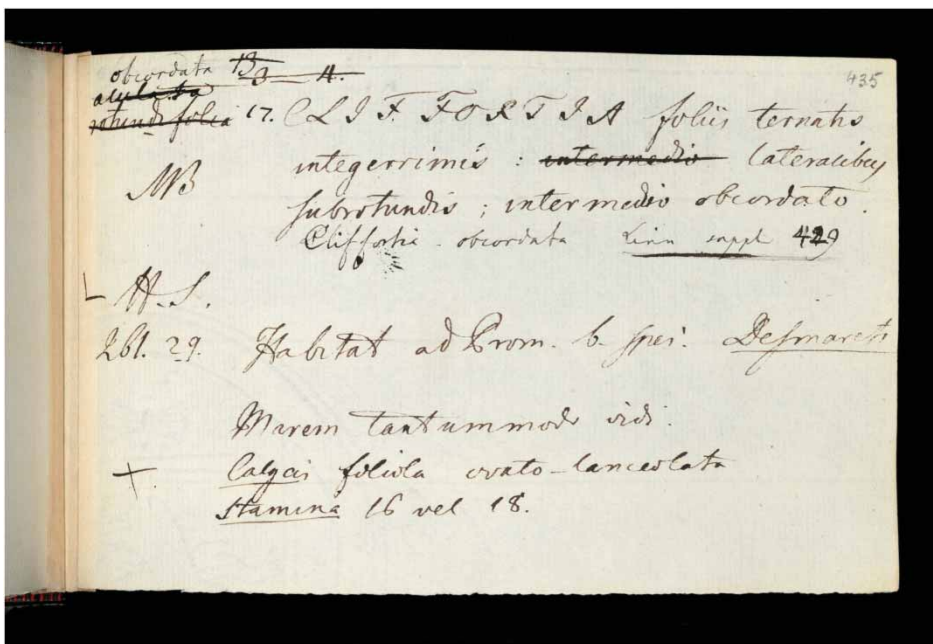 435
obcordata 13 3 4.
rotundifolia 17. CLIFFORTIA foliis ternatis
integerrimis : intermedio lateralibus
subrotundis ; intermedio obcordato.
Cliffortia obcordata Linn suppl 429
MB
H.S.
261. 29. Habitat ad Prom. b. spei. Desmarets
Marem tantummodo vidi.
+. Calycis foliola ovato-lanceolata
Stamina 16 vel 18.